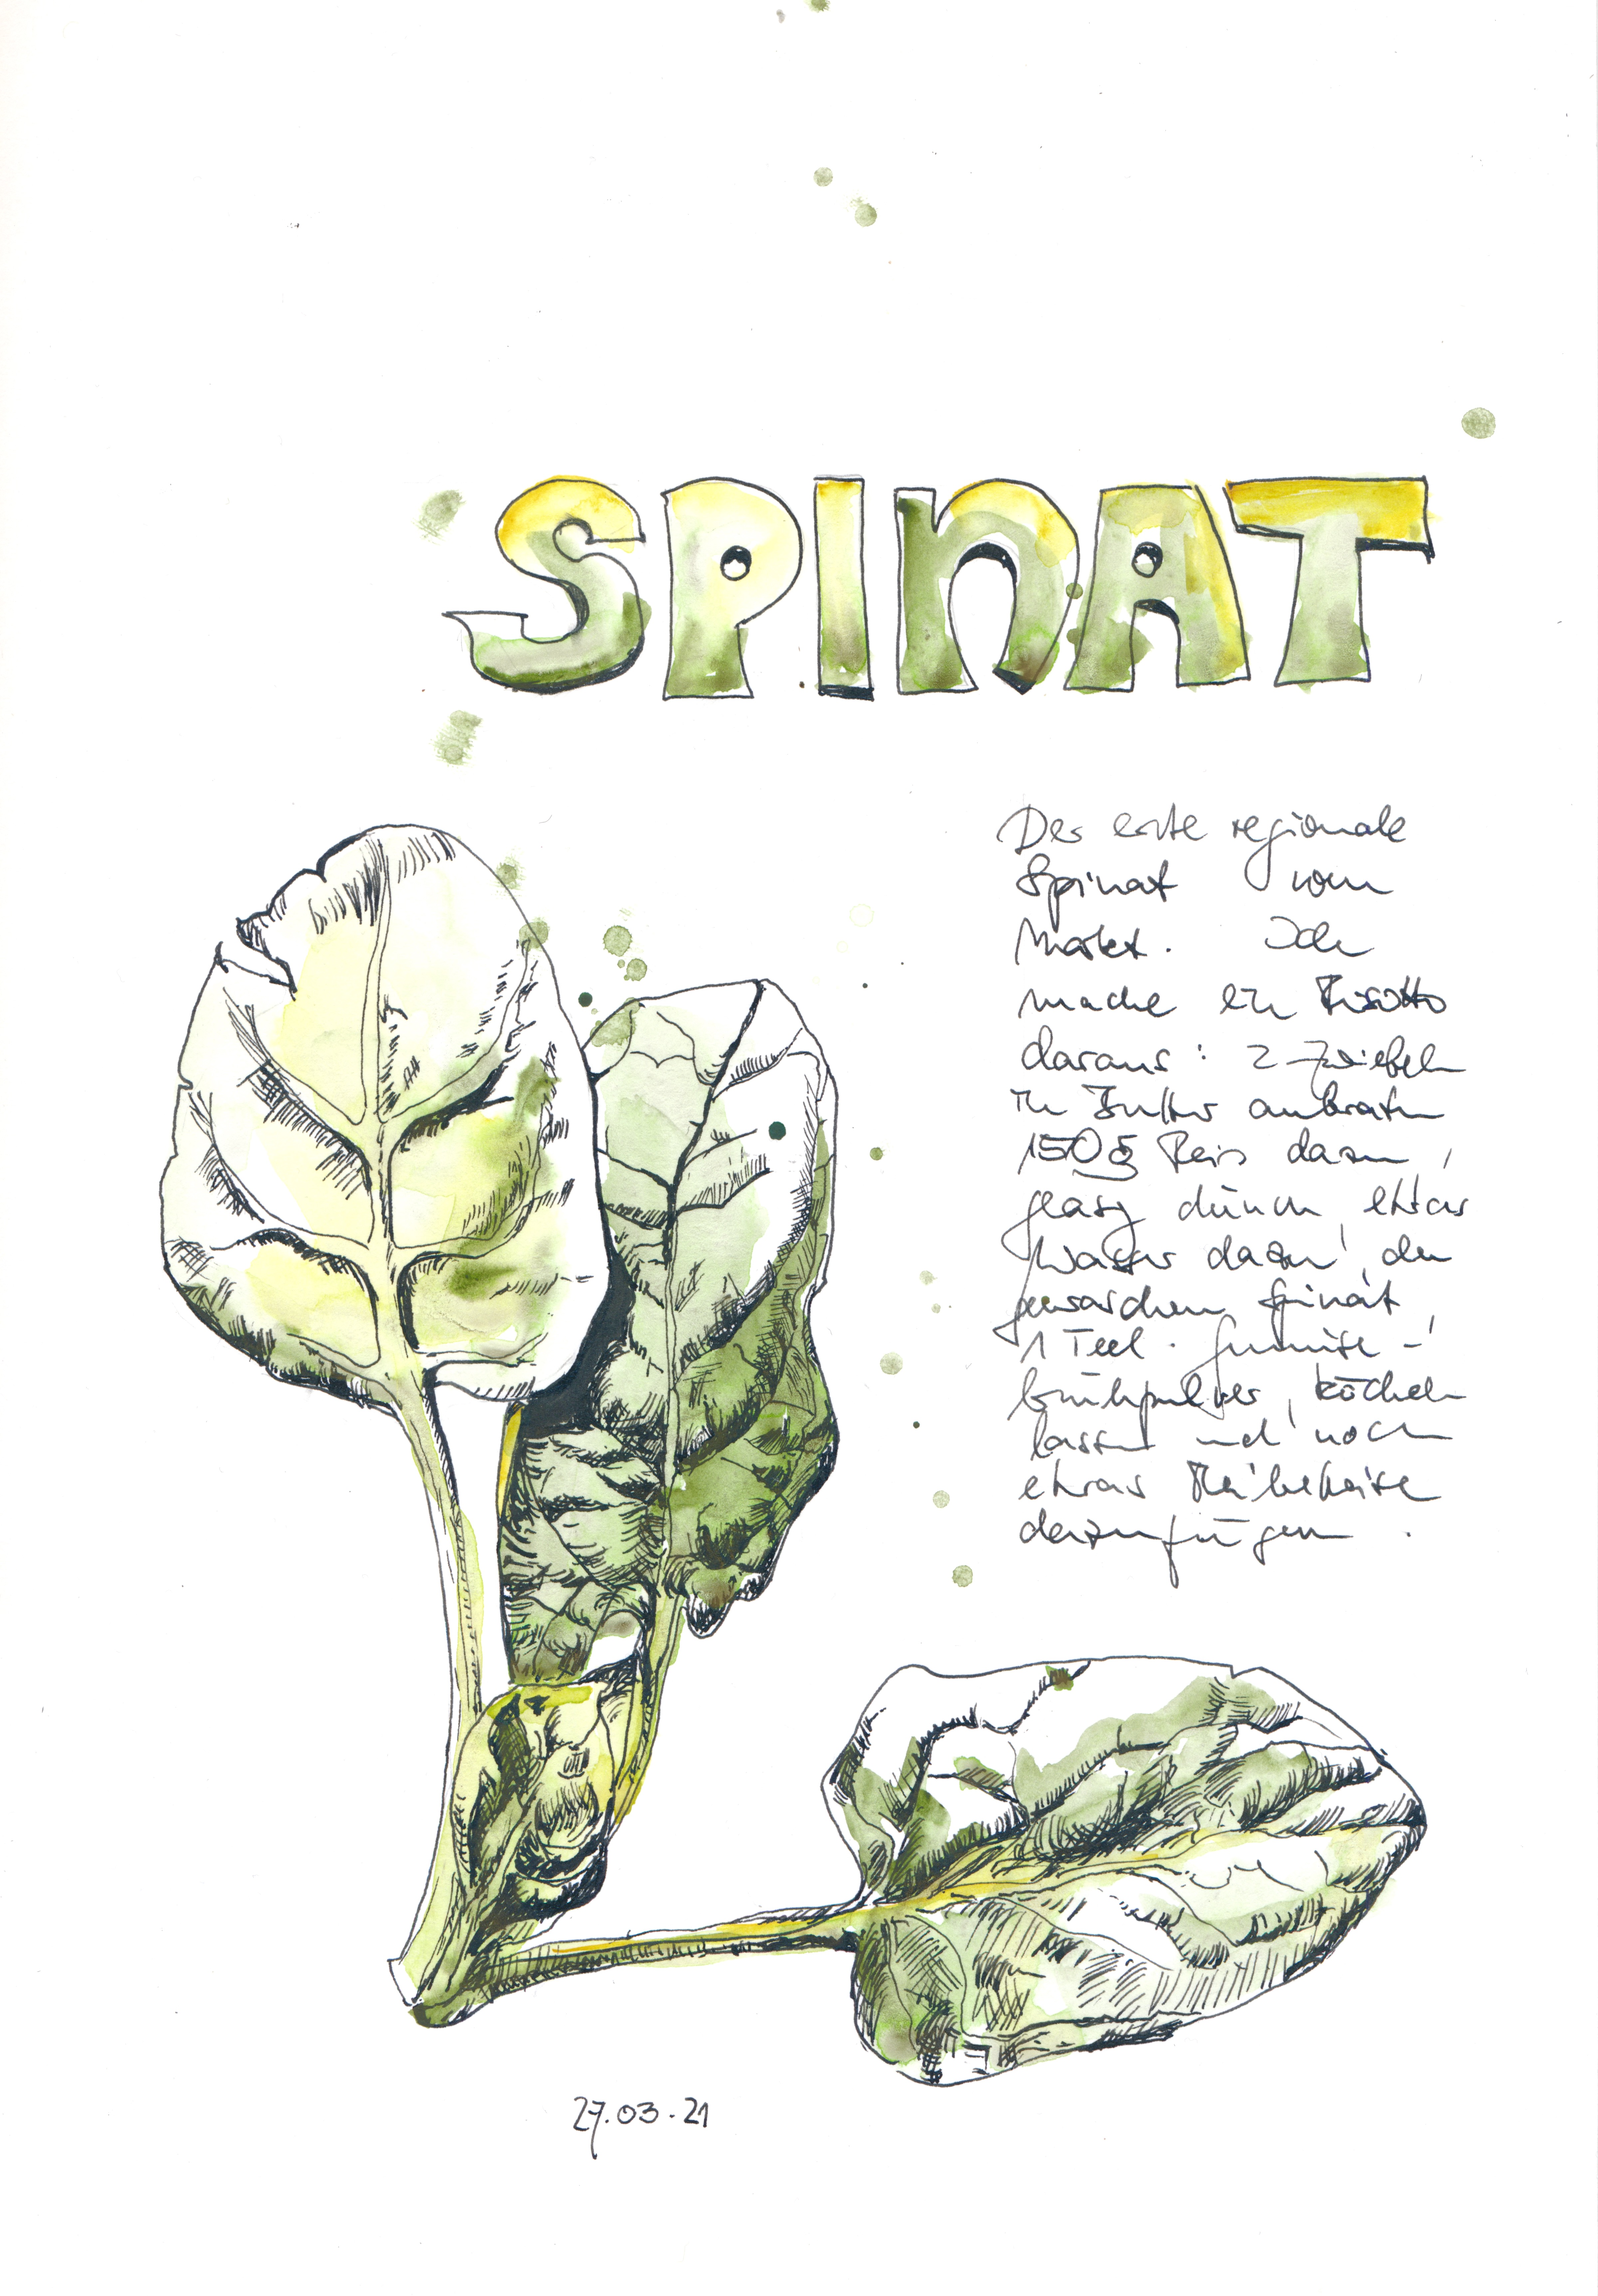 SPINAT
Der erste regionale
Spinat vom
Markt. Ich
mache ein Risotto
daraus: 2 Zwiebeln
in Butter anbraten
150g Reis dazu,
glasig dünsten, etwas
Wasser dazu, den
gewaschenen Spinat,
1 Teel. Gemüse-
brühpulver, köcheln
lassen und noch
etwas Reibekäse
dazufügen.
27.03.21